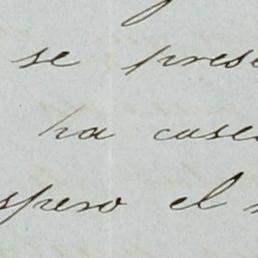 se prese
ha case
spero el